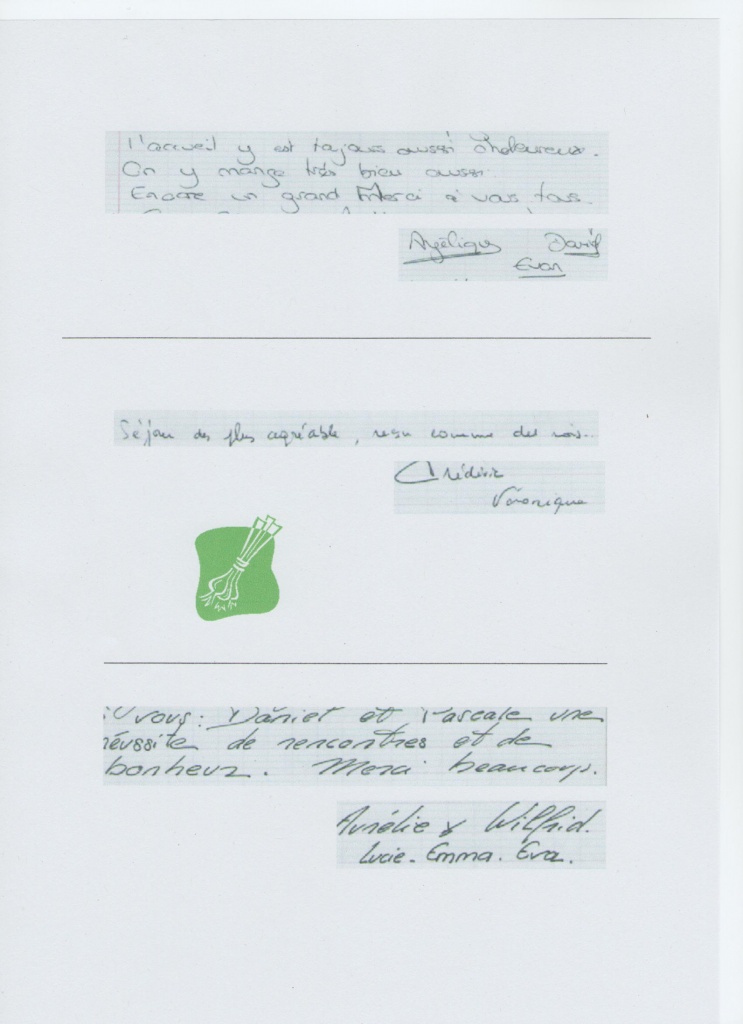 L'accueil y est toujours aussi chaleureux.
On y mange très bien aussi.
Encore un grand Merci à vous tous.
Angélique David
Evan
Séjour des plus agréable, reçu comme des rois...
Frédéric
Véronique
vous : Daniel et Pascale une
réussite de rencontres et de
bonheur. Merci beaucoup.
Aurélie & Wilfrid.
Lucie. Emma. Eva.